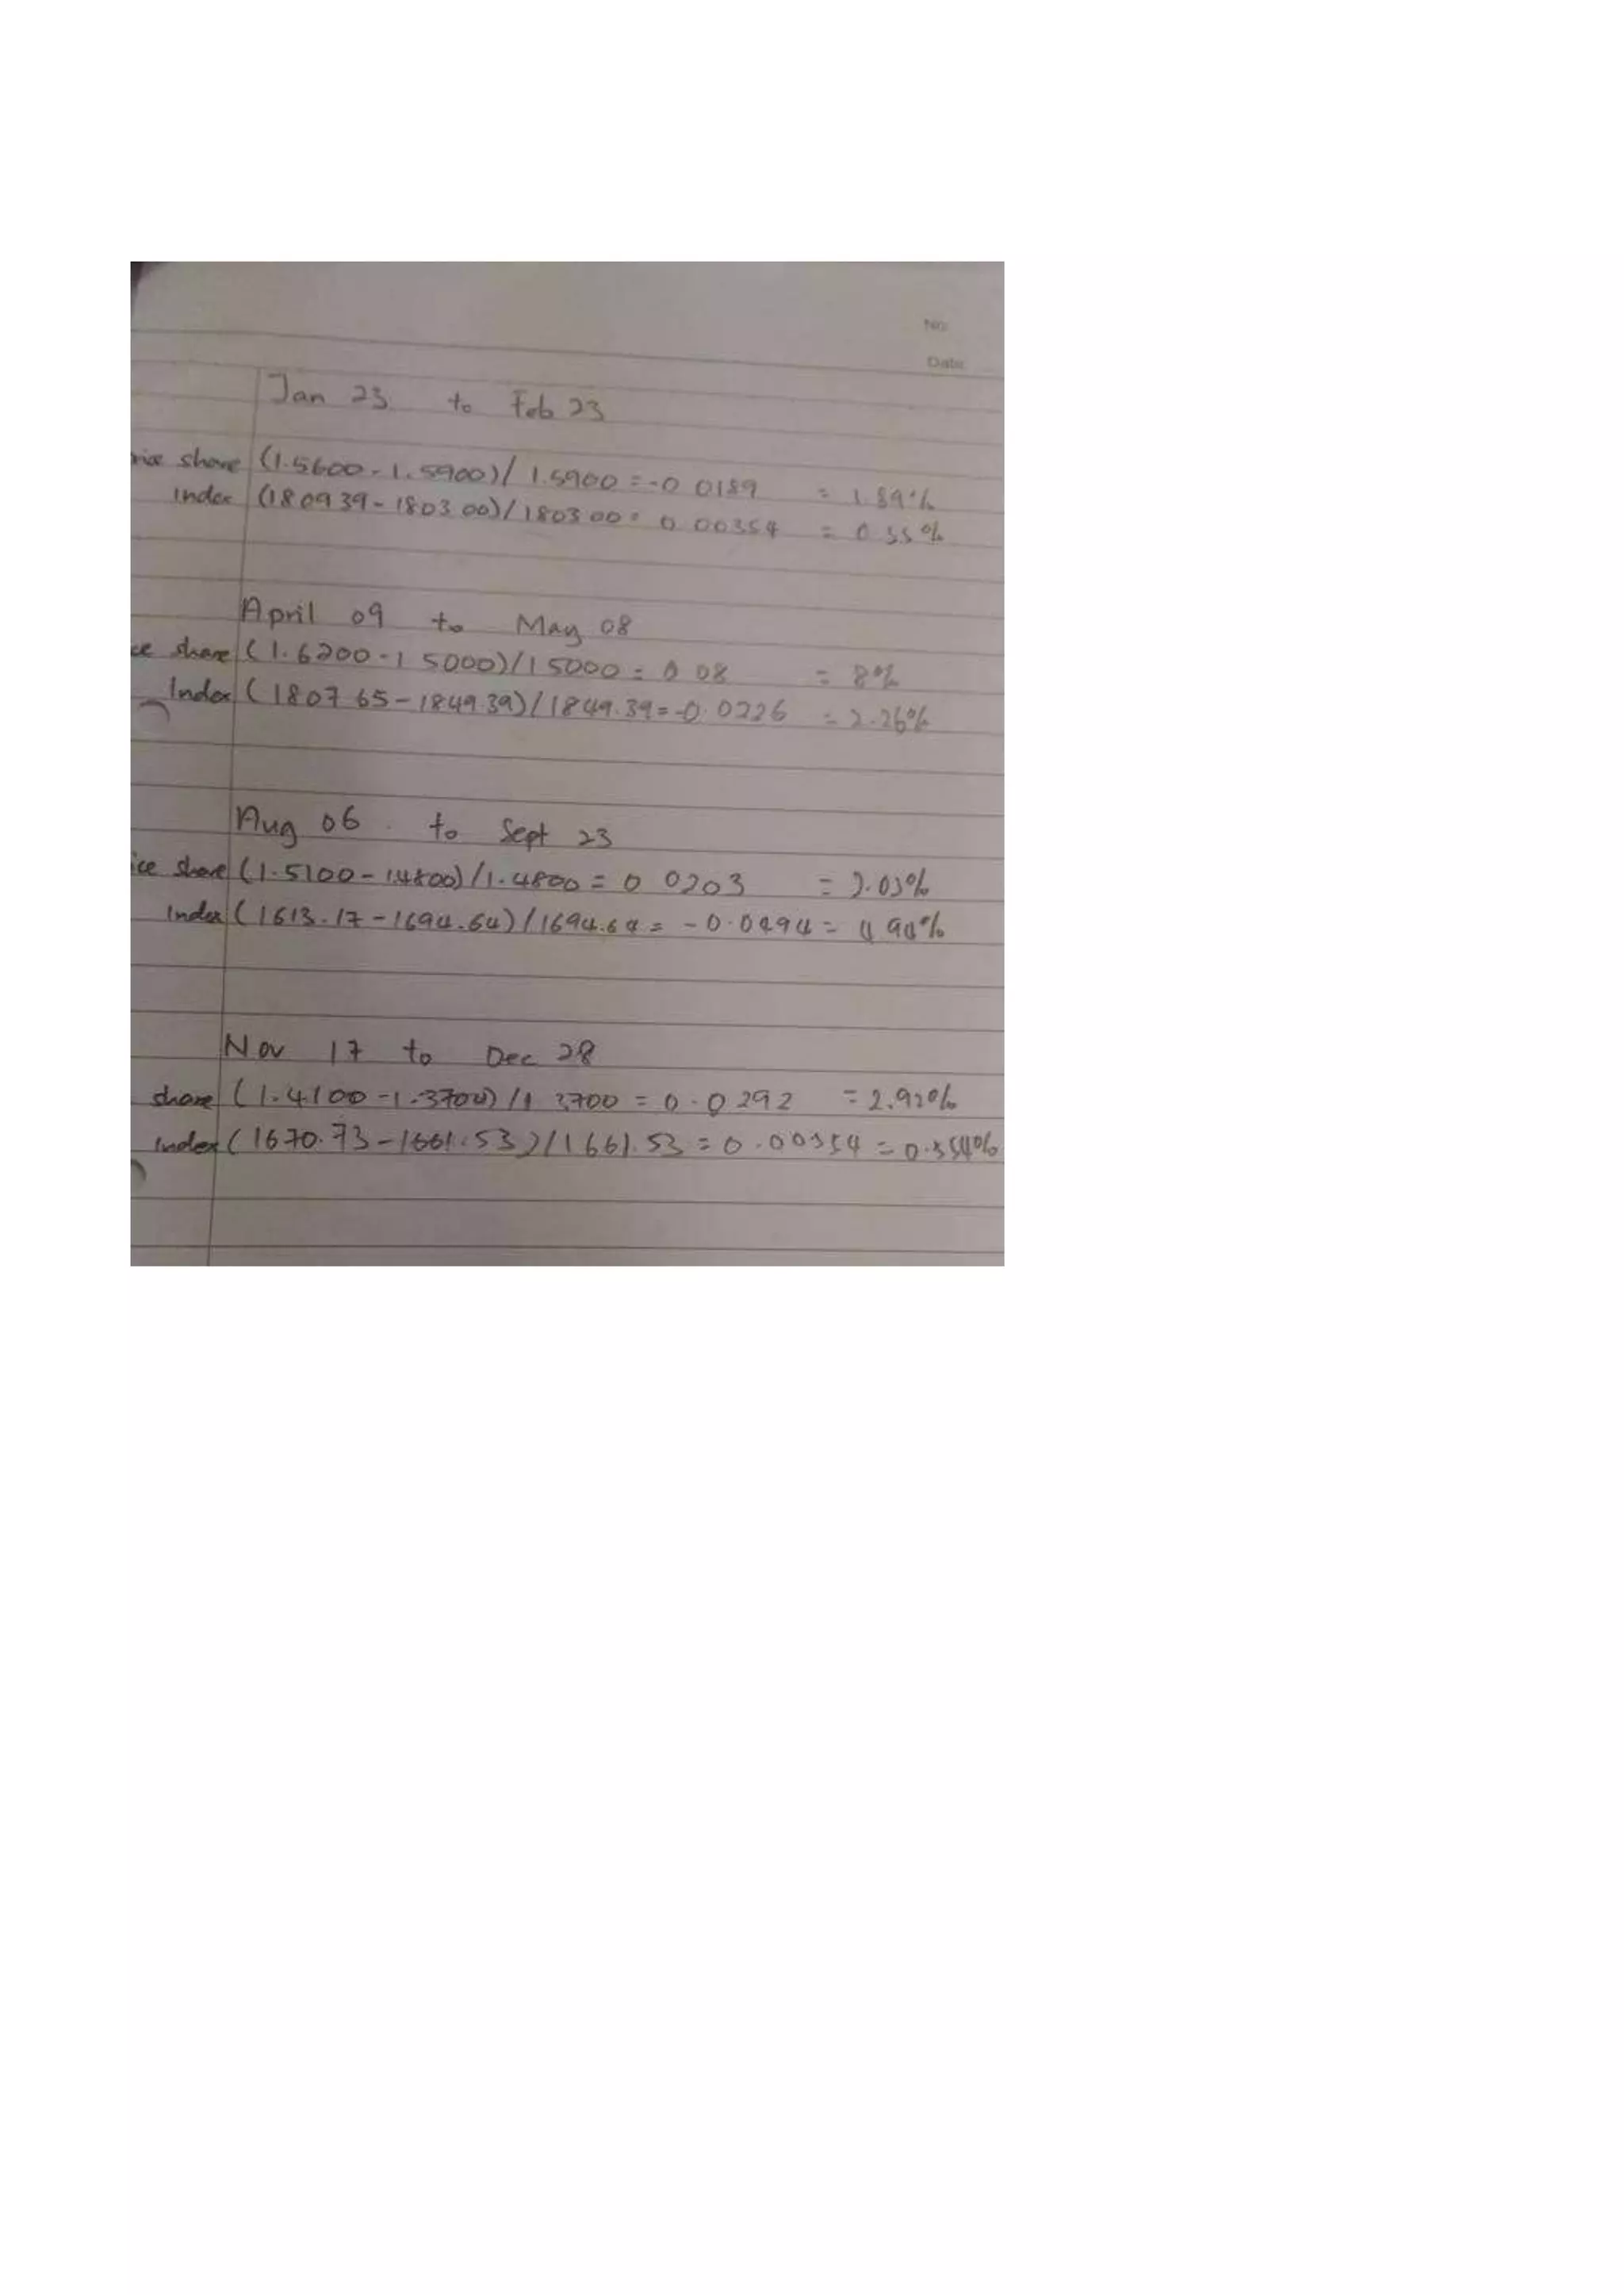 No.
Date
Jan 23 to Feb 23
share (1.5600 - 1.5900) / 1.5900 = -0.0189 = 1.89%
Index (1809.39 - 1803.00) / 1803.00 = 0.00354 = 0.35%
April 09 to May 08
ce share (1.6200 - 1.5000) / 1.5000 = 0.08 = 8%
Index (1807.65 - 1849.39) / 1849.39 = -0.0226 = 2.26%
Aug 06 to Sept 23
ice share (1.5100 - 1.4800) / 1.4800 = 0.0203 = 2.03%
Index (1613.17 - 1694.64) / 1694.64 = -0.0494 = 4.94%
Nov 17 to Dec 28
share (1.4100 - 1.3700) / 1.3700 = 0.0292 = 2.92%
Index (1670.73 - 1661.53) / 1661.53 = 0.00554 = 0.554%